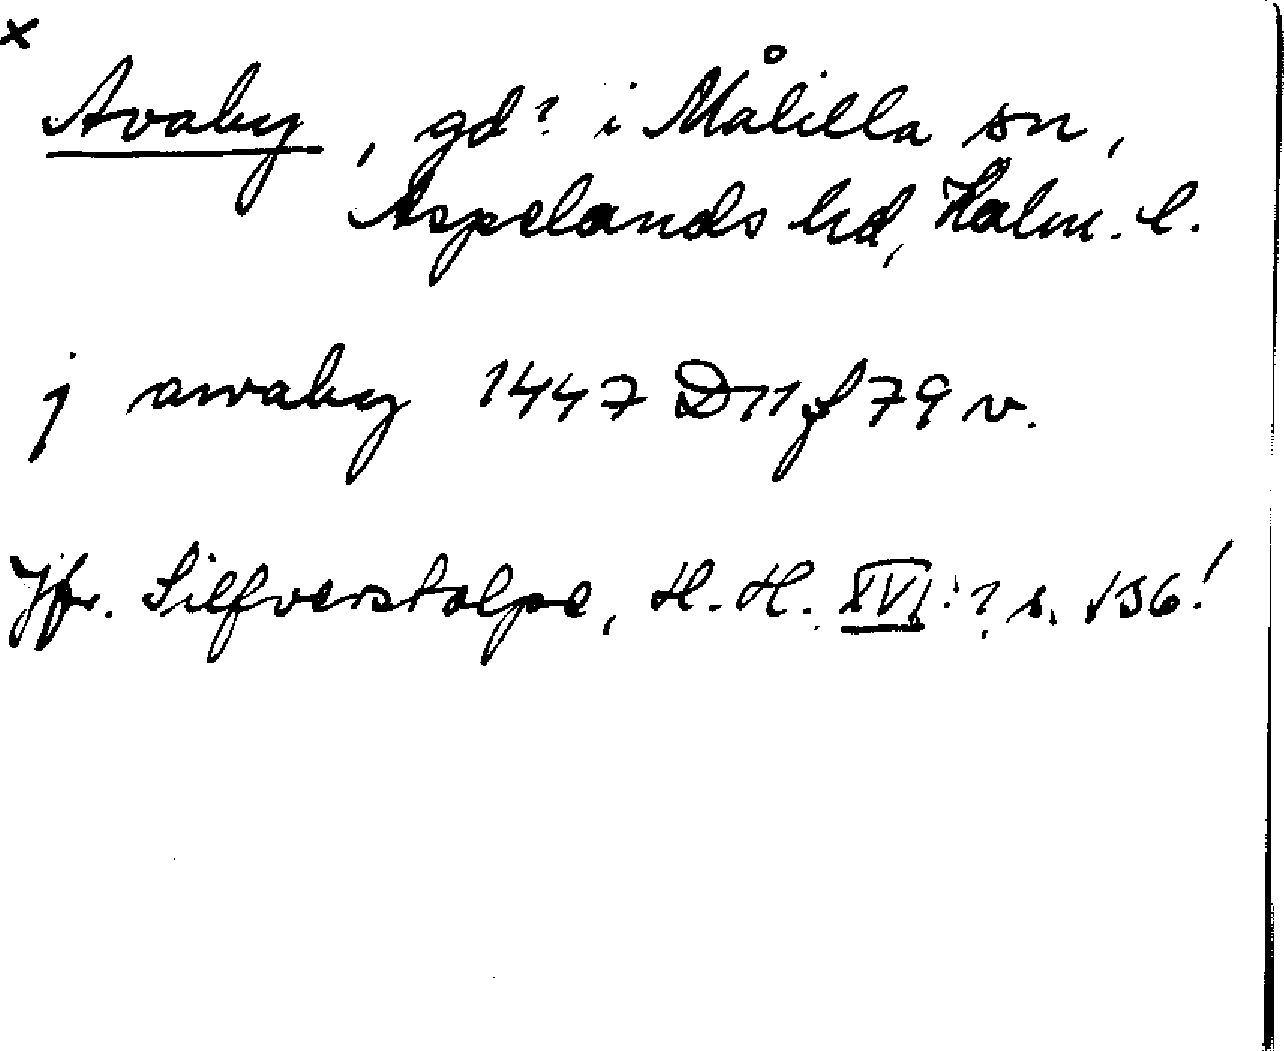 x
Avaby, gd? i Målilla sn,
Aspelands hd, Kalm. l.
j awaby 1447 D 11 f 79 v.
Jfr. Silfverstolpe, H. H. XVI: ? s. 136!